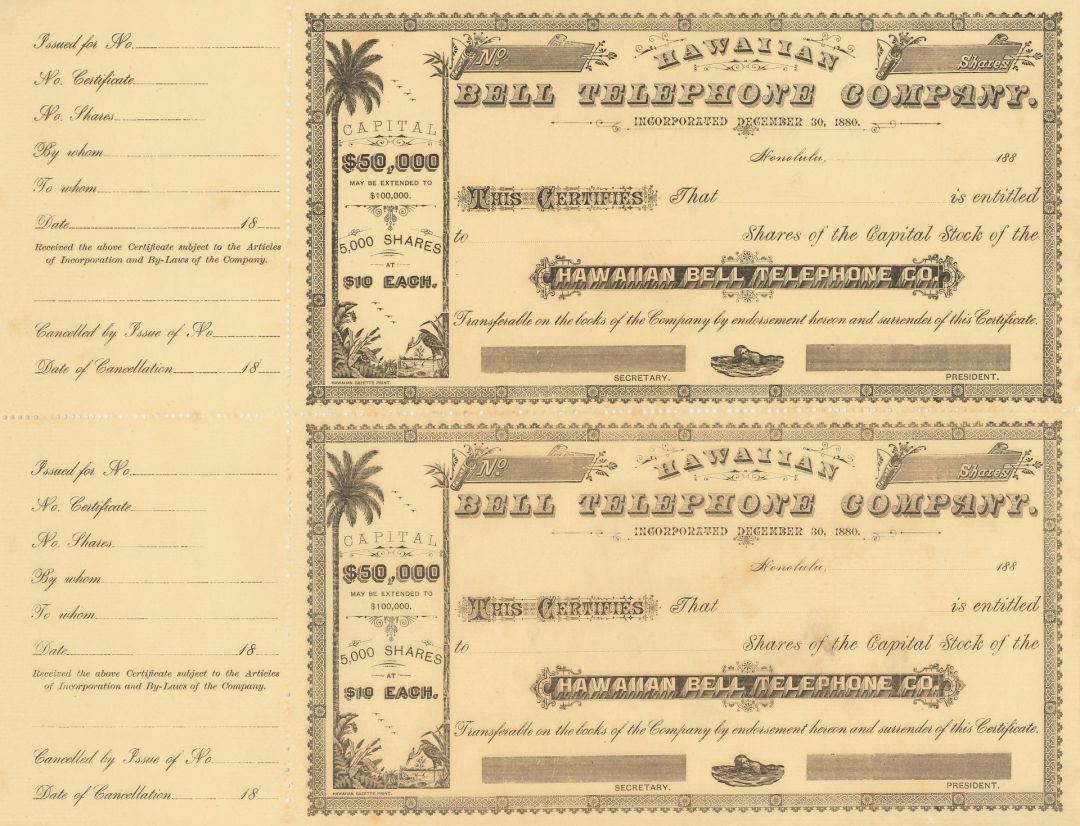 Issued for No.
No. Certificate
No. Shares
By whom
To whom
Date 18
Received the above Certificate subject to the Articles
of Incorporation and By-Laws of the Company.
Cancelled by Issue of No.
Date of Cancellation 18
No.
Shares
HAWAIIAN
BELL TELEPHONE COMPANY.
INCORPORATED DECEMBER 30, 1880.
Honolulu, 188
CAPITAL
$50,000
MAY BE EXTENDED TO
$100,000.
5,000 SHARES
AT
$10 EACH.
THIS CERTIFIES That is entitled
to Shares of the Capital Stock of the
HAWAIIAN BELL TELEPHONE CO.
Transferable on the books of the Company by endorsement hereon and surrender of this Certificate.
SECRETARY.
PRESIDENT.
HAWAIIAN GAZETTE PRINT.
Issued for No.
No. Certificate
No. Shares
By whom
To whom
Date 18
Received the above Certificate subject to the Articles
of Incorporation and By-Laws of the Company.
Cancelled by Issue of No.
Date of Cancellation 18
No.
Shares
HAWAIIAN
BELL TELEPHONE COMPANY.
INCORPORATED DECEMBER 30, 1880.
Honolulu, 188
CAPITAL
$50,000
MAY BE EXTENDED TO
$100,000.
5,000 SHARES
AT
$10 EACH.
THIS CERTIFIES That is entitled
to Shares of the Capital Stock of the
HAWAIIAN BELL TELEPHONE CO.
Transferable on the books of the Company by endorsement hereon and surrender of this Certificate.
SECRETARY.
PRESIDENT.
HAWAIIAN GAZETTE PRINT.